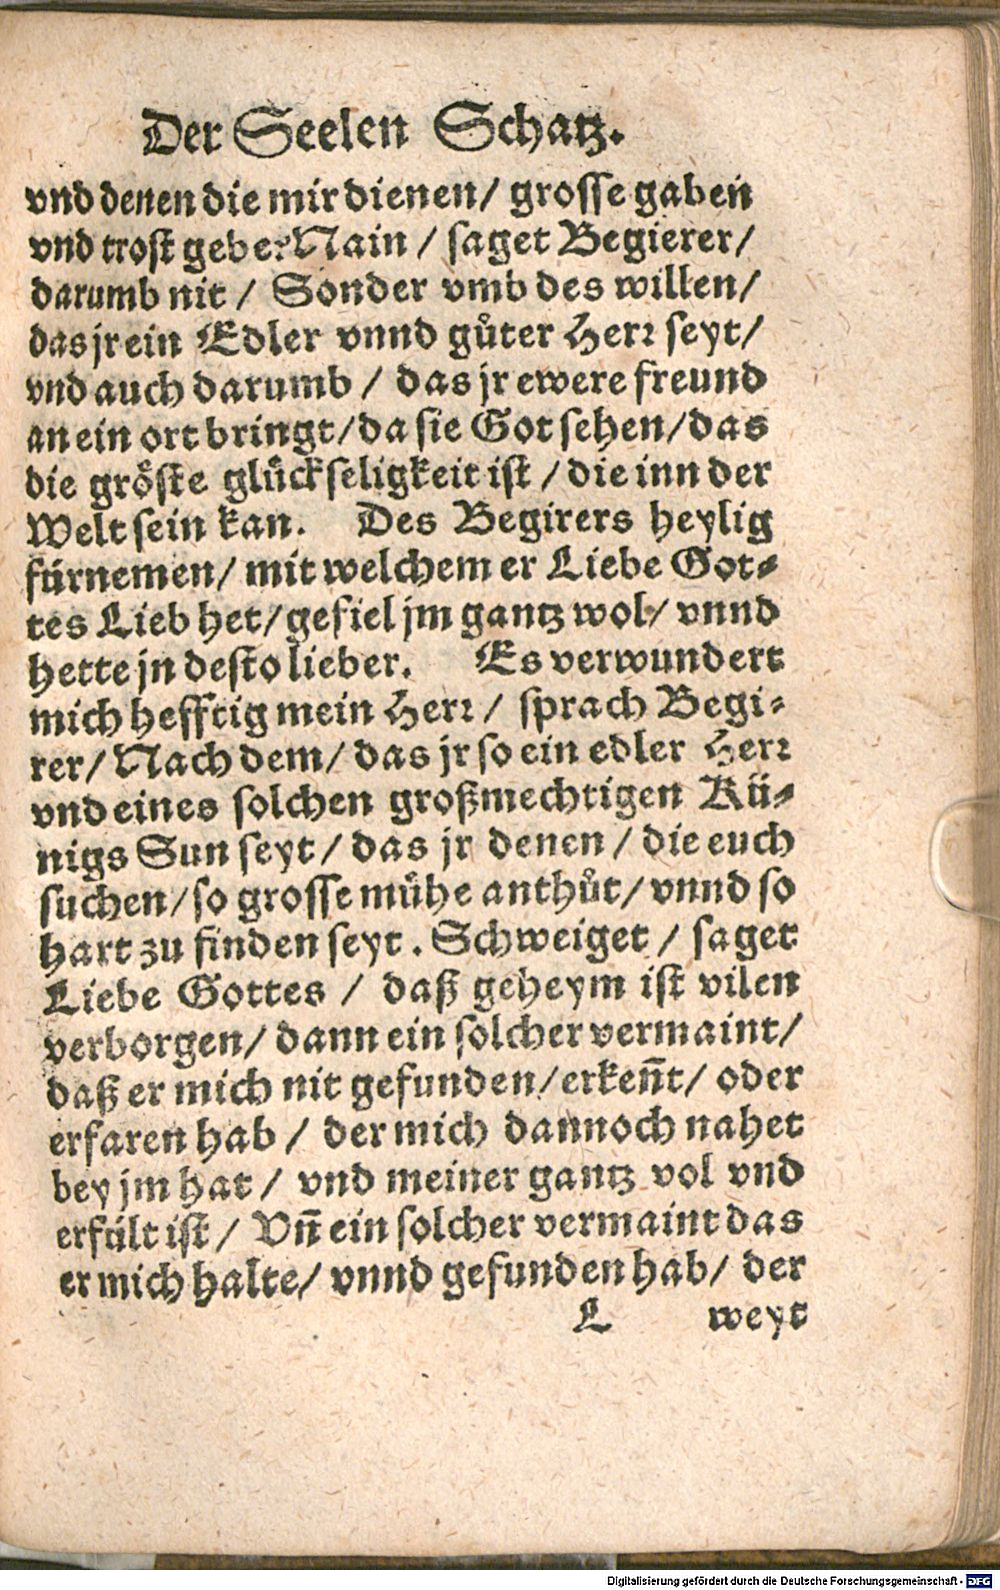 Der Seelen Schatz.
vnd denen die mir dienen/ grosse gaben
vnd trost gebe? Nain / saget Begierer/
darumb nit / Sonder vmb des willen/
das jr ein Edler vnnd gůter Herr seyt/
vnd auch darumb / das jr ewere freund
an ein ort bringt/da sie Got sehen/das
die gröste glückseligkeit ist / die inn der
Welt sein kan. Des Begirers heylig
fürnemen/ mit welchem er Liebe Got-
tes Lieb het/gefiel jm gantz wol/ vnnd
hette jn desto lieber. Es verwundert
mich hefftig mein Herr / sprach Begi-
rer/ Nach dem/ das jr so ein edler Herr
vnd eines solchen großmechtigen Kü-
nigs Sun seyt / das jr denen / die euch
suchen/so grosse mühe anthůt/ vnnd so
hart zu finden seyt. Schweiget / saget
Liebe Gottes / daß geheym ist vilen
verborgen/ dann ein solcher vermaint/
daß er mich nit gefunden/erkeñt/ oder
erfaren hab / der mich dannoch nahet
bey jm hat / vnd meiner gantz vol vnd
erfült ist / Vñ ein solcher vermaint das
er mich halte/ vnnd gefunden hab/ der
L weyt
Digitalisierung gefördert durch die Deutsche Forschungsgemeinschaft - DFG